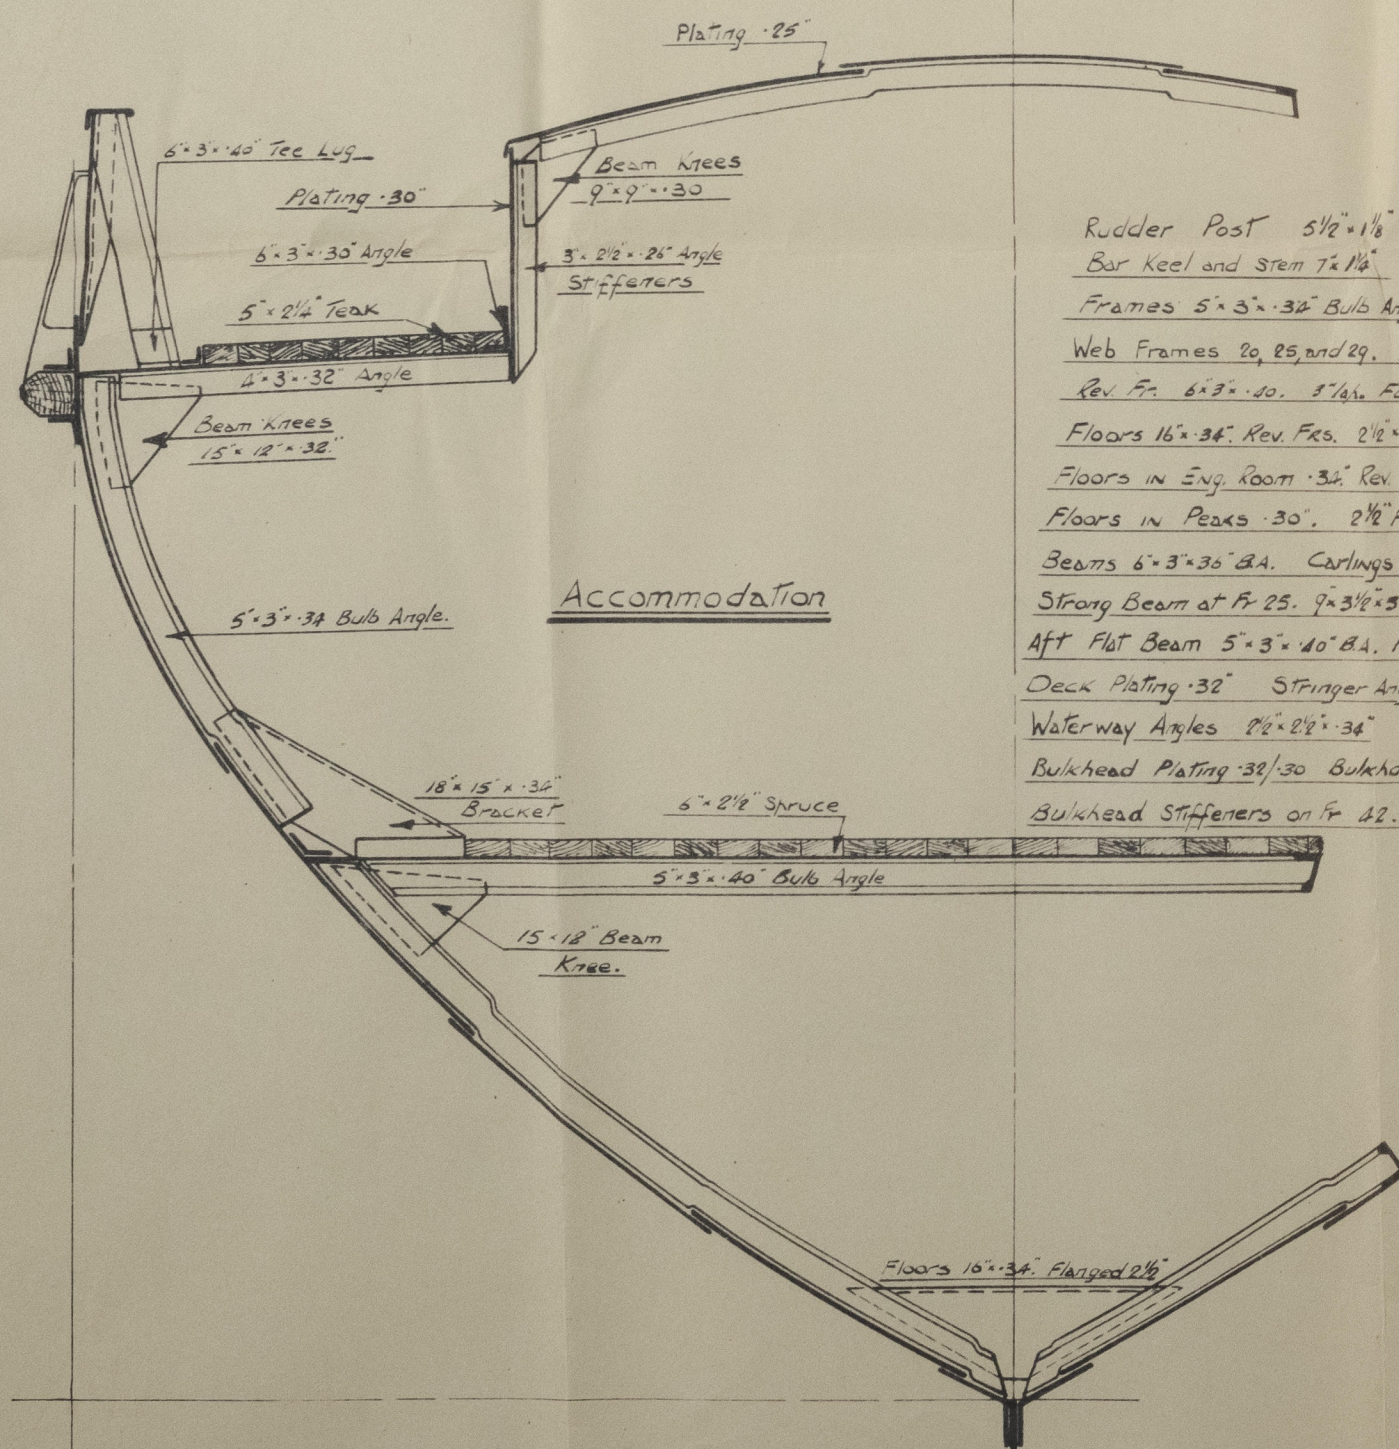 Plating ·25"
6"×3"×·40" Tee Lug
Beam Knees
9"×9"×·30
Plating ·30"
6"×3"×·30" Angle
3"×2½"×·26" Angle
Stiffeners
5"×2¼" Teak
4"×3"×·32" Angle
Beam Knees
15"×12"×·32"
5"×3"×·34 Bulb Angle.
Accommodation
18"×15"×·34"
Bracket
6"×2½" Spruce
5"×3"×·40" Bulb Angle
15×18" Beam
Knee.
Floors 16"×·34". Flanged 2½"
Rudder Post 5½"×1⅛"
Bar Keel and Stem 7"×1¼"
Frames 5"×3"×·34" Bulb
Web Frames 20, 25, and 29.
Rev. Fr. 6"×3"×·40. 3" lap.
Floors 16"×·34". Rev. Frs. 2½"×
Floors IN Eng. Room ·34". Rev.
Floors IN Peaks ·30". 2½"
Beams 6"×3"×36" B.A. Carlings
Strong Beam at Fr 25. 9"×3½"×
Aft Flat Beam 5"×3"×·40" B.A.
Deck Plating ·32" Stringer
Waterway Angles 2½"×2½"×·34"
Bulkhead Plating ·32/·30
Bulkhead Stiffeners on Fr 42.